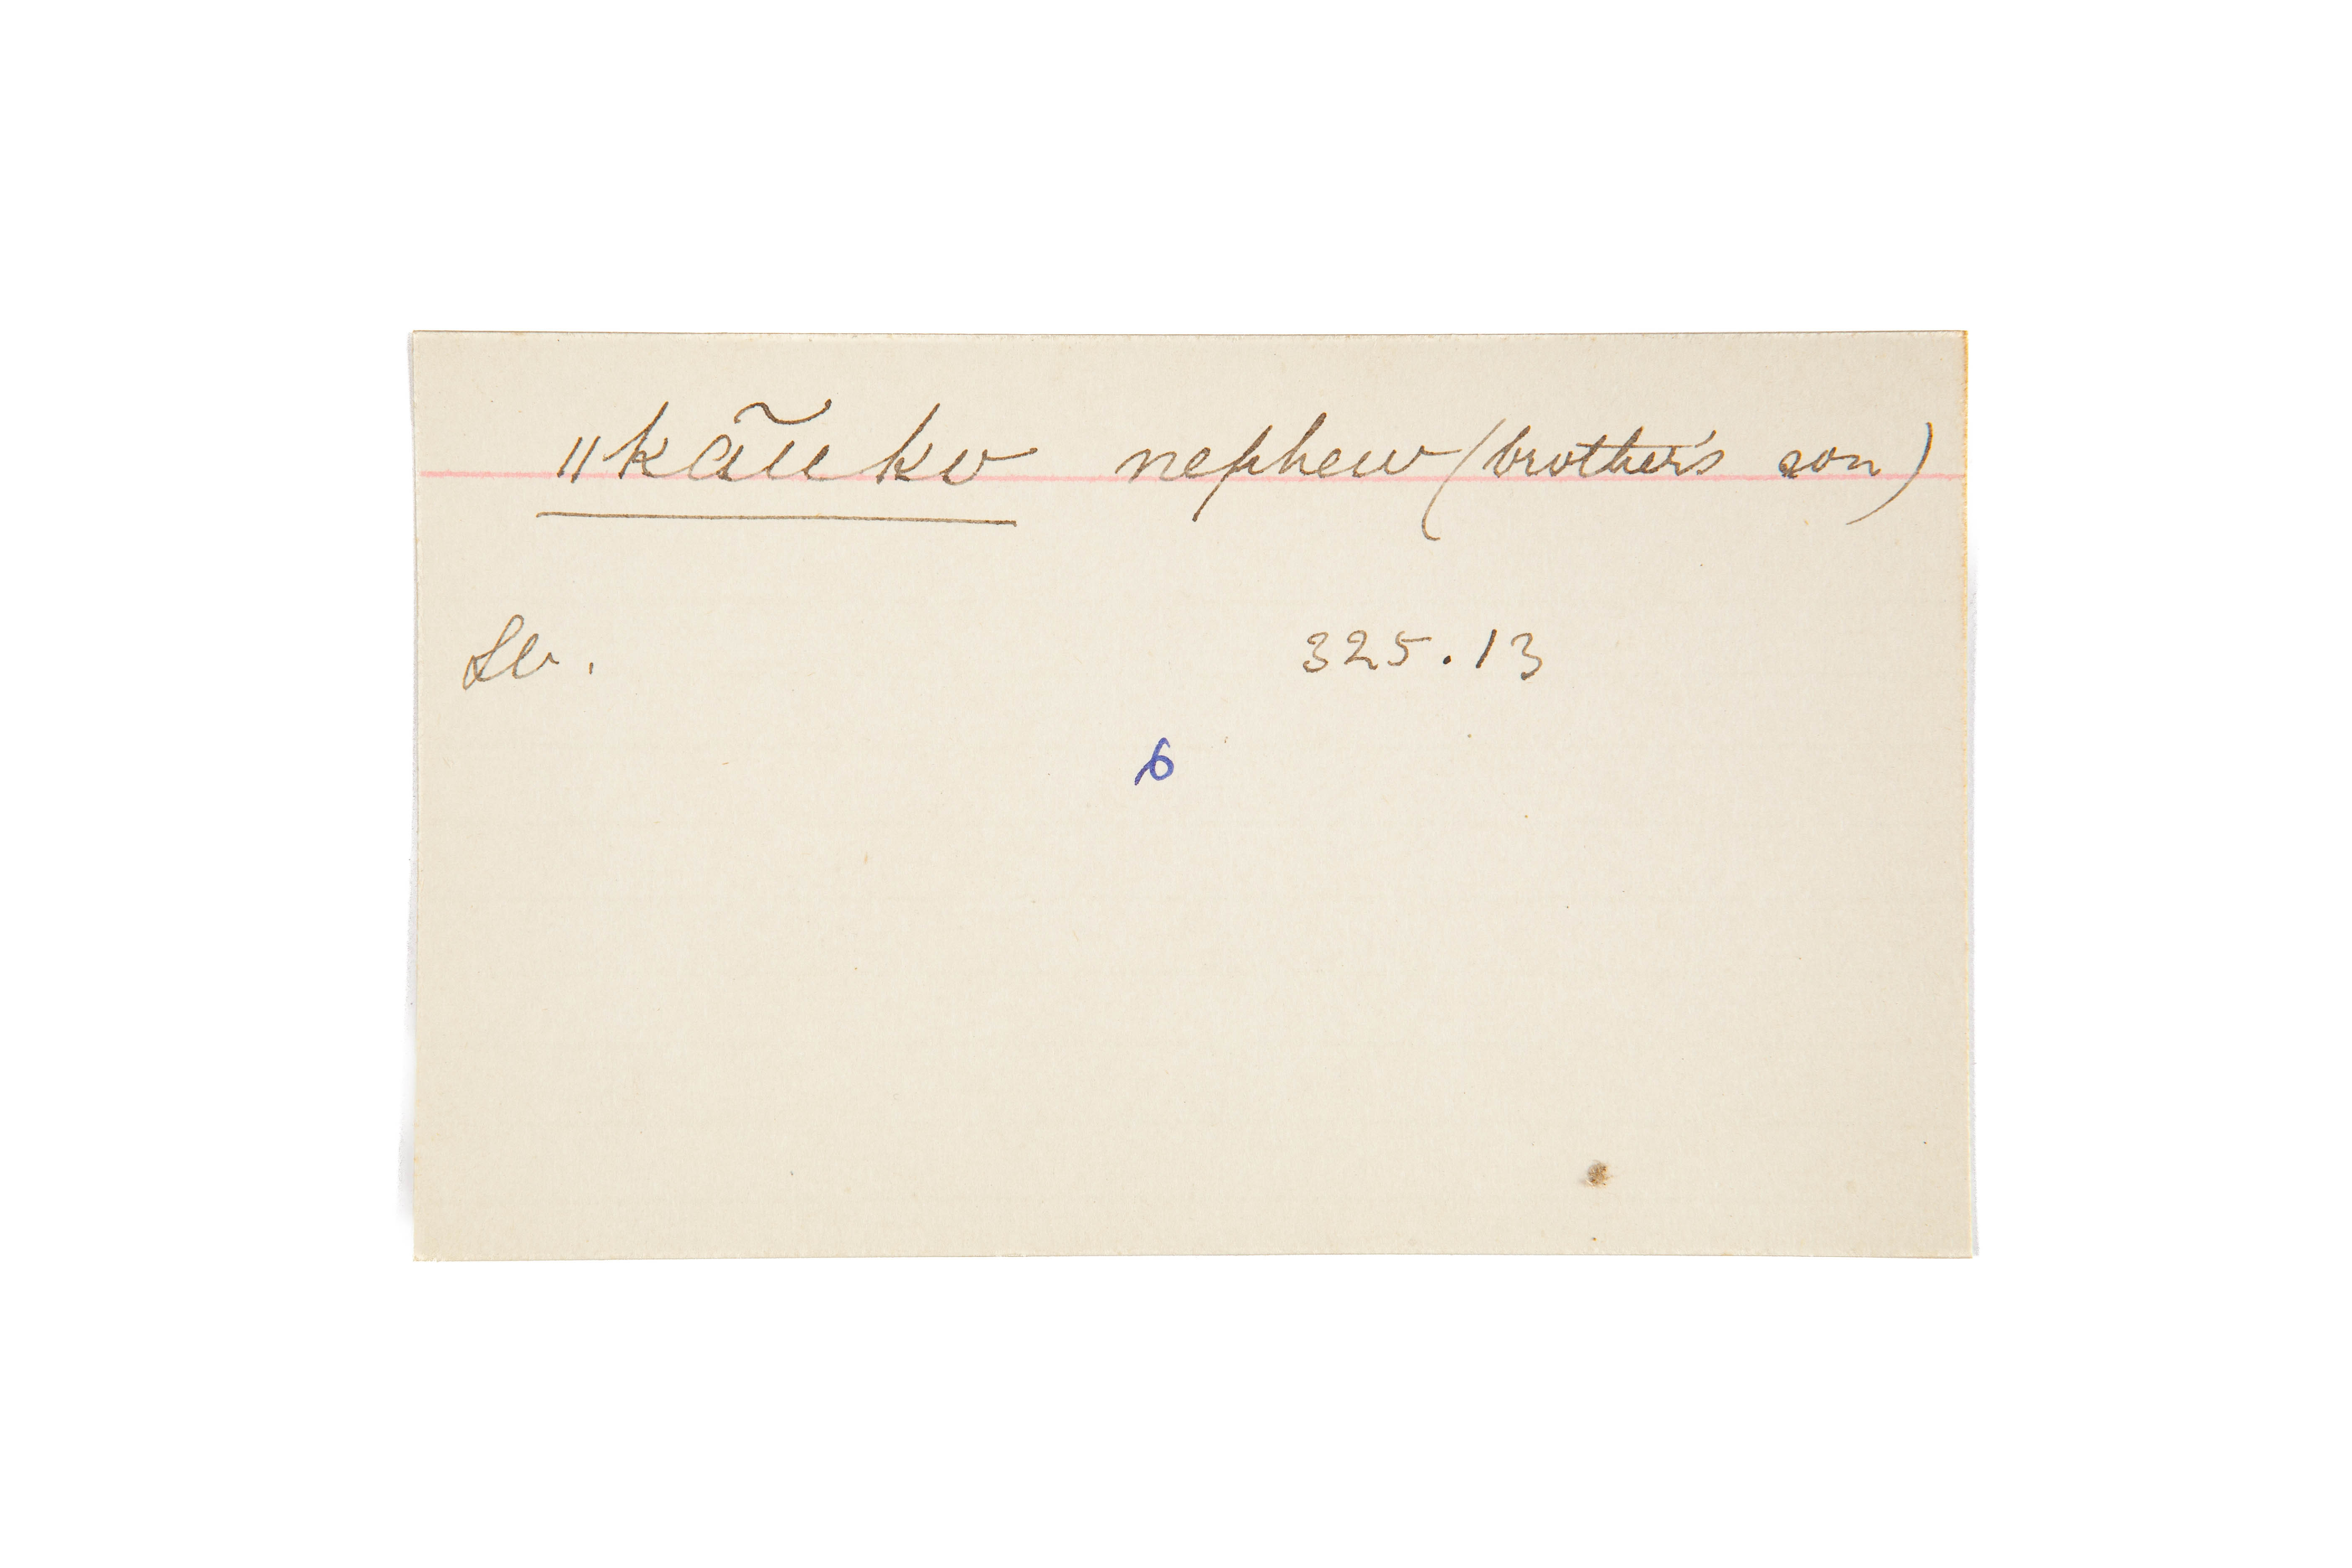 ǁkãuko nephew (brother's son)
Se. 325.13
6